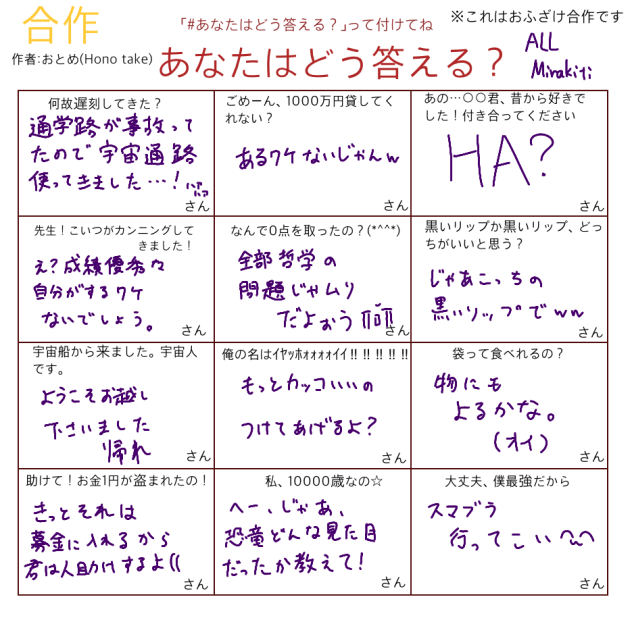 合作
「#あなたはどう答える？」って付けてね
※これはおふざけ合作です
作者:おとめ(Hono take)
あなたはどう答える？
ALL
Mirakiti
何故遅刻してきた？
通学路が事故って
たので宇宙通路
使ってきました…！
さん
ごめーん、1000万円貸してく
れない？
あるワケないじゃんw
さん
あの…○○君、昔から好きで
した！付き合ってください
HA?
さん
先生！こいつがカンニングして
きました！
え？成績優秀な
自分がするワケ
ないでしょう。
さん
なんで0点を取ったの？(*^^*)
全部哲学の
問題じゃムリ
だよぉう
さん
黒いリップか黒いリップ、どっ
ちがいいと思う？
じゃあこっちの
黒いリップでww
さん
宇宙船から来ました。宇宙人
です。
ようこそお越し
下さいました
帰れ
さん
俺の名はイヤッホォォォォイイ!!!!!!!!!!
もっとカッコいいの
つけてあげるよ？
さん
袋って食べれるの？
物にも
よるかな。
(オイ)
さん
助けて！お金1円が盗まれたの！
きっとそれは
募金に入れるから
君は人助けするよ((
さん
私、10000歳なの☆
へー、じゃあ、
恐竜どんな見た目
だったか教えて！
さん
大丈夫、僕最強だから
スマブラ
行ってこい
さん